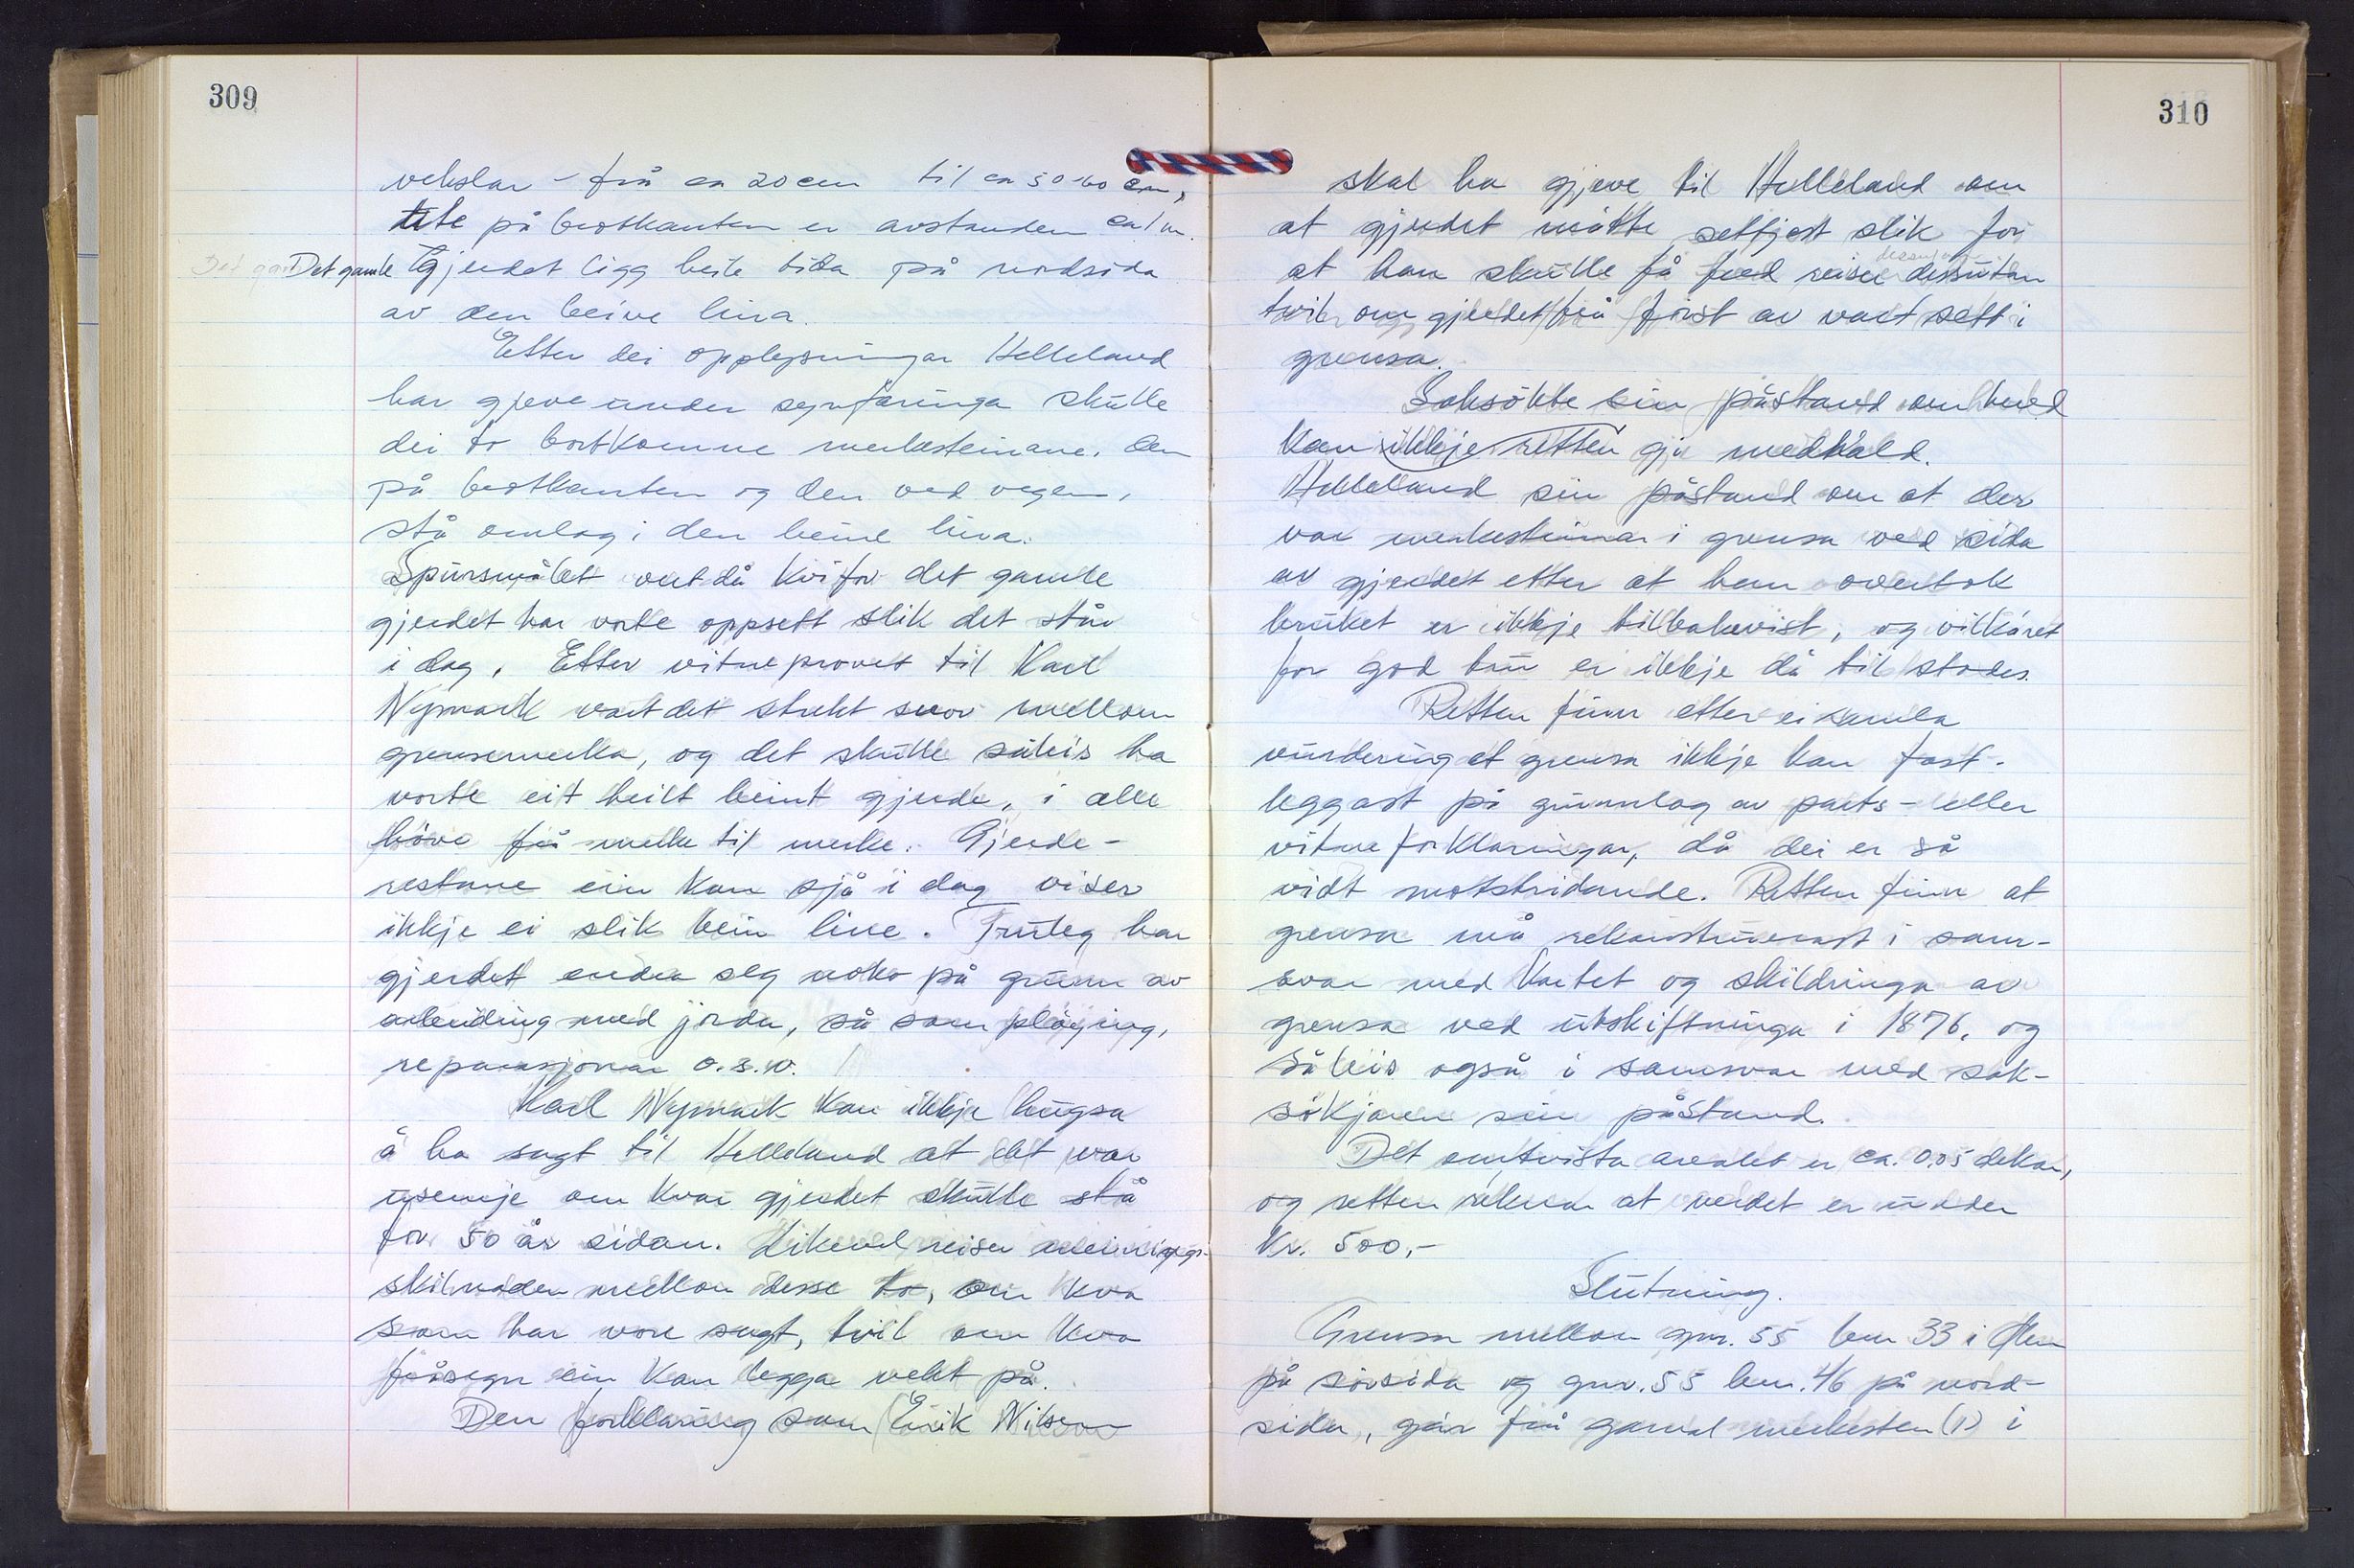 309
vekslar - frå ca 20 cm til ca 50-60 cm,
ute på brotkanten er avstanden ca 1 m.
Det gamle gjerdet ligg heile tida på nordsida
av den beine lina.
Etter dei opplysningar Helleland
har gjeve under synfaringa skulle
dei to bortkomne merkesteinane, den
på brotkanten og den ved vegen,
stå omlag i den beine lina.
Spursmålet vert då kvifor det gamle
gjerdet har vorte oppsett slik det står
i dag. Etter vitneprovet til Karl
Nymark vart det strekt snor mellom
grensemerka, og det skulle såleis ha
vorte eit heilt beint gjerde, i alle
høve frå merke til merke. Gjerde-
restane ein kan sjå i dag viser
ikkje ei slik bein line. Truleg har
gjerdet endra seg noko på grunn av
arbeiding med jorda, så som pløying,
reparasjonar o.s.v.
Karl Nymark kan ikkje hugsa
å ha sagt til Helleland at det var
usemje om kvar gjerdet skulle stå
for 50 år sidan. Likevel reiser meinings-
skilnaden mellom desse to, om kva
som har vore sagt, tvil om kva
fråsegn ein kan leggja vekt på.
Den forklaring som Eirik Nilsson
310
skal ha gjeve til Helleland om
at gjerdet måtte setjast slik for
at han skulle få fred reiser dessutan
tvil om gjerdet frå først av vart sett i
grensa.
Saksøkte sin påstand om hevd
kan ikkje retten gje medhald.
Helleland sin påstand om at der
var merkesteinar i grensa ved sida
av gjerdet etter at han overtok
bruket er ikkje tilbakevist, og vilkåret
for god tru er ikkje då til stades.
Retten finn etter ei samla
vurdering at grensa ikkje kan fast-
leggast på grunnlag av parts- eller
vitneforklaringar, då dei er så
vidt motstridande. Retten finn at
grensa må rekonstruerast i sam-
svar med kartet og skildringa av
grensa ved utskiftninga i 1876, og
såleis også i samsvar med sak-
søkjaren sin påstand.
Det omtvista arealet er ca. 0.05 dekar,
og retten reknar at verdet er under
kr. 500,-
Slutning.
Grensa mellom gnr. 55 bnr 33 i
på sørsida og gnr. 55 bnr. 46 på nord-
sida, går frå gamal merkestein (1) i